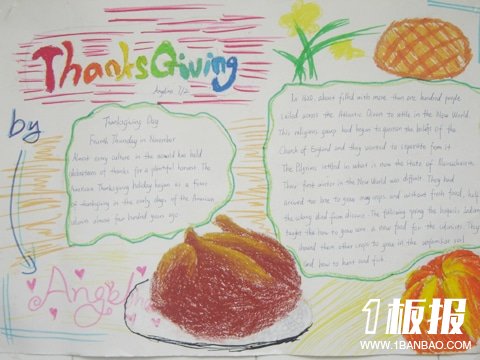 ThanksGiving
Angelina 7/2
by
Angelina
Thanksgiving Day
Fourth Thursday in November
Almost every culture in the world has held
celebrations of thanks for a plentiful harvest. The
American Thanksgiving holiday began as a feast
of thanksgiving in the early days of the American
colonies almost four hundred years ago
In 1620, a boat filled with more than one hundred people
sailed across the Atlantic Ocean to settle in the New World.
This religious group had begun to question the beliefs of the
Church of England and they wanted to separate from it.
The Pilgrims settled in what is now the state of Massachusetts.
Their first winter in the New World was difficult. They had
arrived too late to grow many crops, and without fresh food, half
the colony died from disease. The following spring the Iroquois Indians
taught them how to grow corn a new food for the colonists. They
showed them other crops to grow in the unfamiliar soil
and how to hunt and fish.
1板报
WWW.1BANBAO.COM